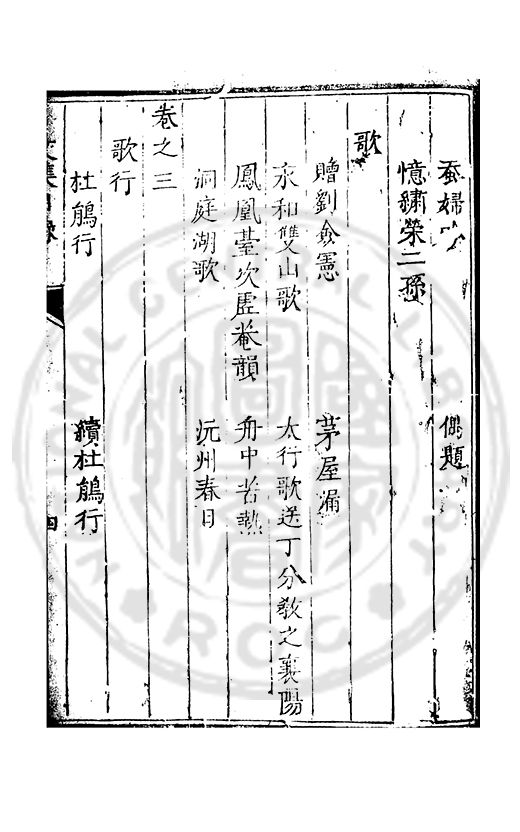 蚕婦吟 偶題
憶繡榮二孫
歌
贈劉僉憲 茅屋漏
永和雙山歌 太行歌送丁分教之襄陽
鳳凰臺次虛菴韻 舟中苦熱
洞庭湖歌 沅州春日
卷之三
歌行
杜鵑行 續杜鵑行
文集目錄 四